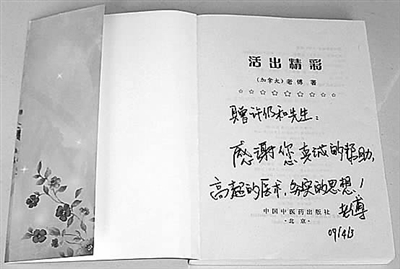 活出精彩
（加拿大）老傅 著
赠许仍和先生：
感谢您真诚的帮助，
高超的医术，务实的思想！
中国中医药出版社
·北京·
老傅